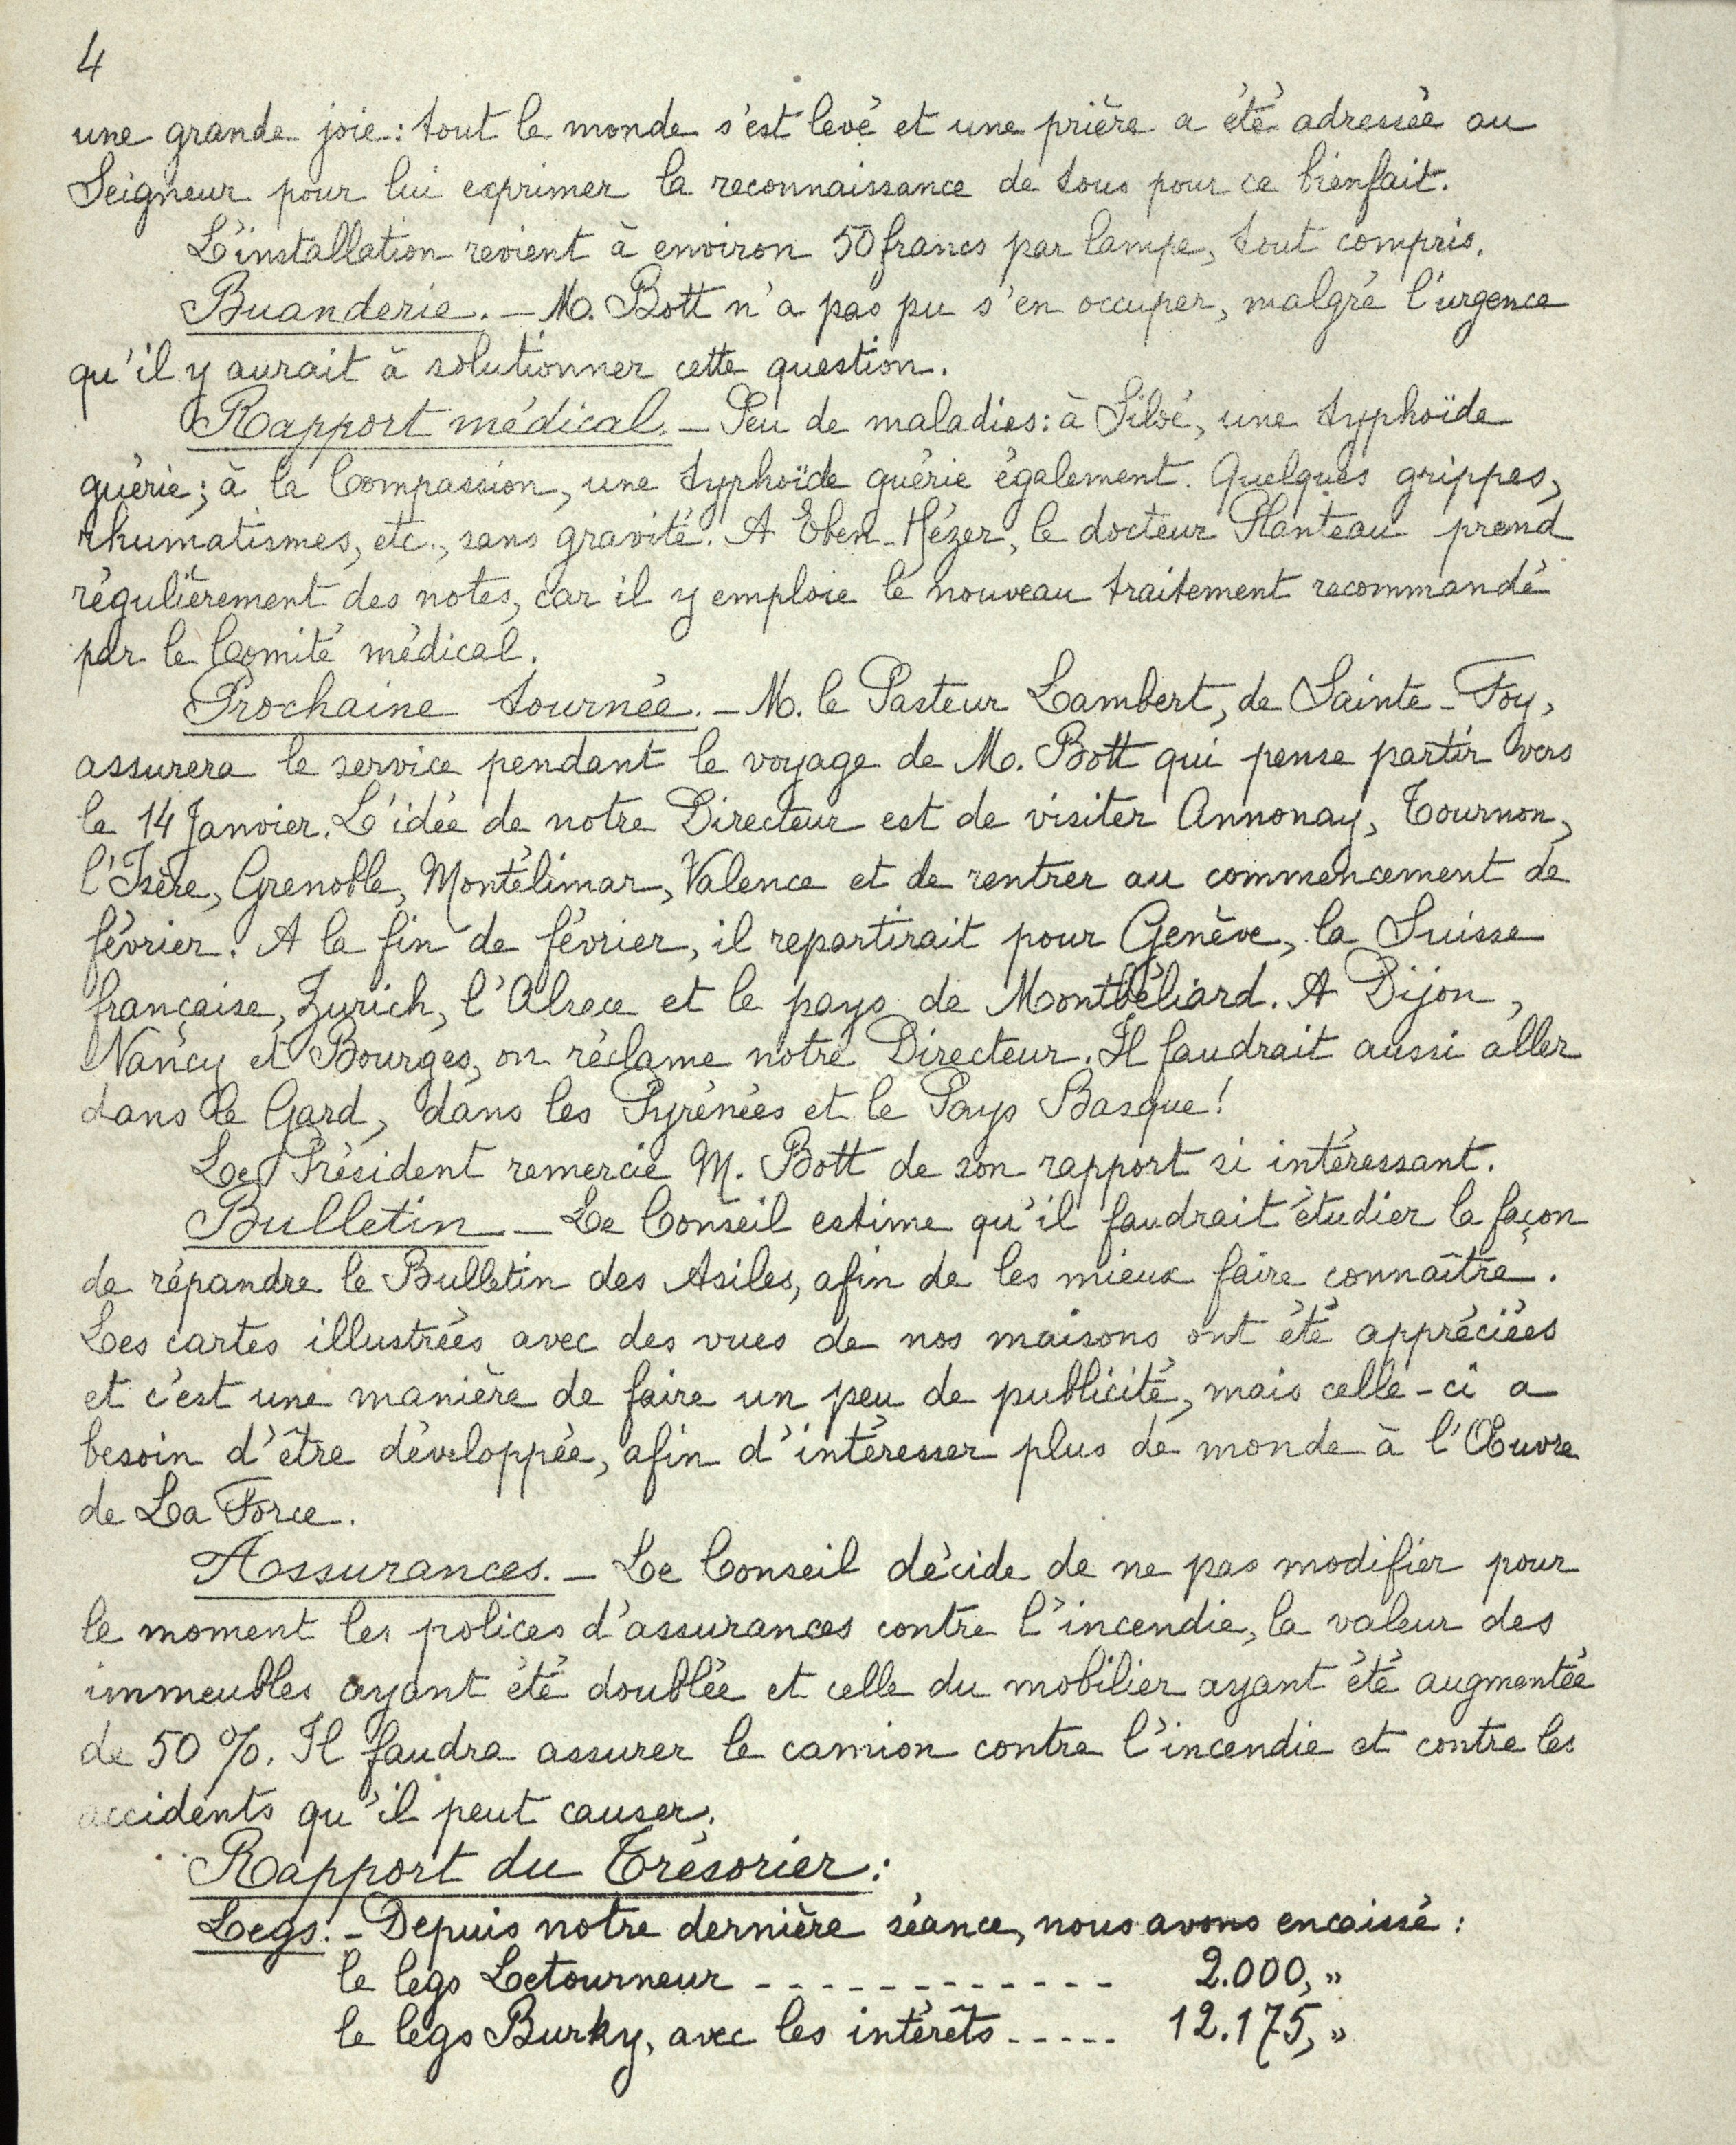 4
une grande joie : tout le monde s'est levé et une prière a été adressée au
Seigneur pour lui exprimer la reconnaissance de tous pour ce bienfait.
L'installation revient à environ 50 francs par lampe, tout compris.
Buanderie. — M. Bott n'a pas pu s'en occuper, malgré l'urgence
qu'il y aurait à solutionner cette question.
Rapport médical. — Peu de maladies : à Siloé, une typhoïde
guérie ; à la Compassion, une typhoïde guérie également. Quelques grippes,
rhumatismes, etc., sans gravité. A Eben-Hézer, le docteur Planteau prend
régulièrement des notes, car il y emploie le nouveau traitement recommandé
par le Comité médical.
Prochaine tournée. — M. le Pasteur Lambert, de Sainte-Foy,
assurera le service pendant le voyage de M. Bott qui pense partir vers
le 14 Janvier. L'idée de notre Directeur est de visiter Annonay, Tournon,
l'Isère, Grenoble, Montélimar, Valence et de rentrer au commencement de
février. A la fin de février, il repartirait pour Genève, la Suisse
française, Zurich, l'Alsace et le pays de Montbéliard. A Dijon,
Nancy et Bourges, on réclame notre Directeur. Il faudrait aussi aller
dans le Gard, dans les Pyrénées et le Pays Basque !
Le Président remercie M. Bott de son rapport si intéressant.
Bulletin. — Le Conseil estime qu'il faudrait étudier la façon
de répandre le Bulletin des Asiles, afin de les mieux faire connaître.
Les cartes illustrées avec des vues de nos maisons ont été appréciées
et c'est une manière de faire un peu de publicité, mais celle-ci a
besoin d'être développée, afin d'intéresser plus de monde à l'Œuvre
de La Force.
Assurances. — Le Conseil décide de ne pas modifier pour
le moment les polices d'assurances contre l'incendie, la valeur des
immeubles ayant été doublée et celle du mobilier ayant été augmentée
de 50 %. Il faudra assurer le camion contre l'incendie et contre les
accidents qu'il peut causer.
Rapport du Trésorier :
Legs. — Depuis notre dernière séance, nous avons encaissé :
le legs Letourneur ------------ 2.000,"
le legs Burky, avec les intérêts ----- 12.175,"